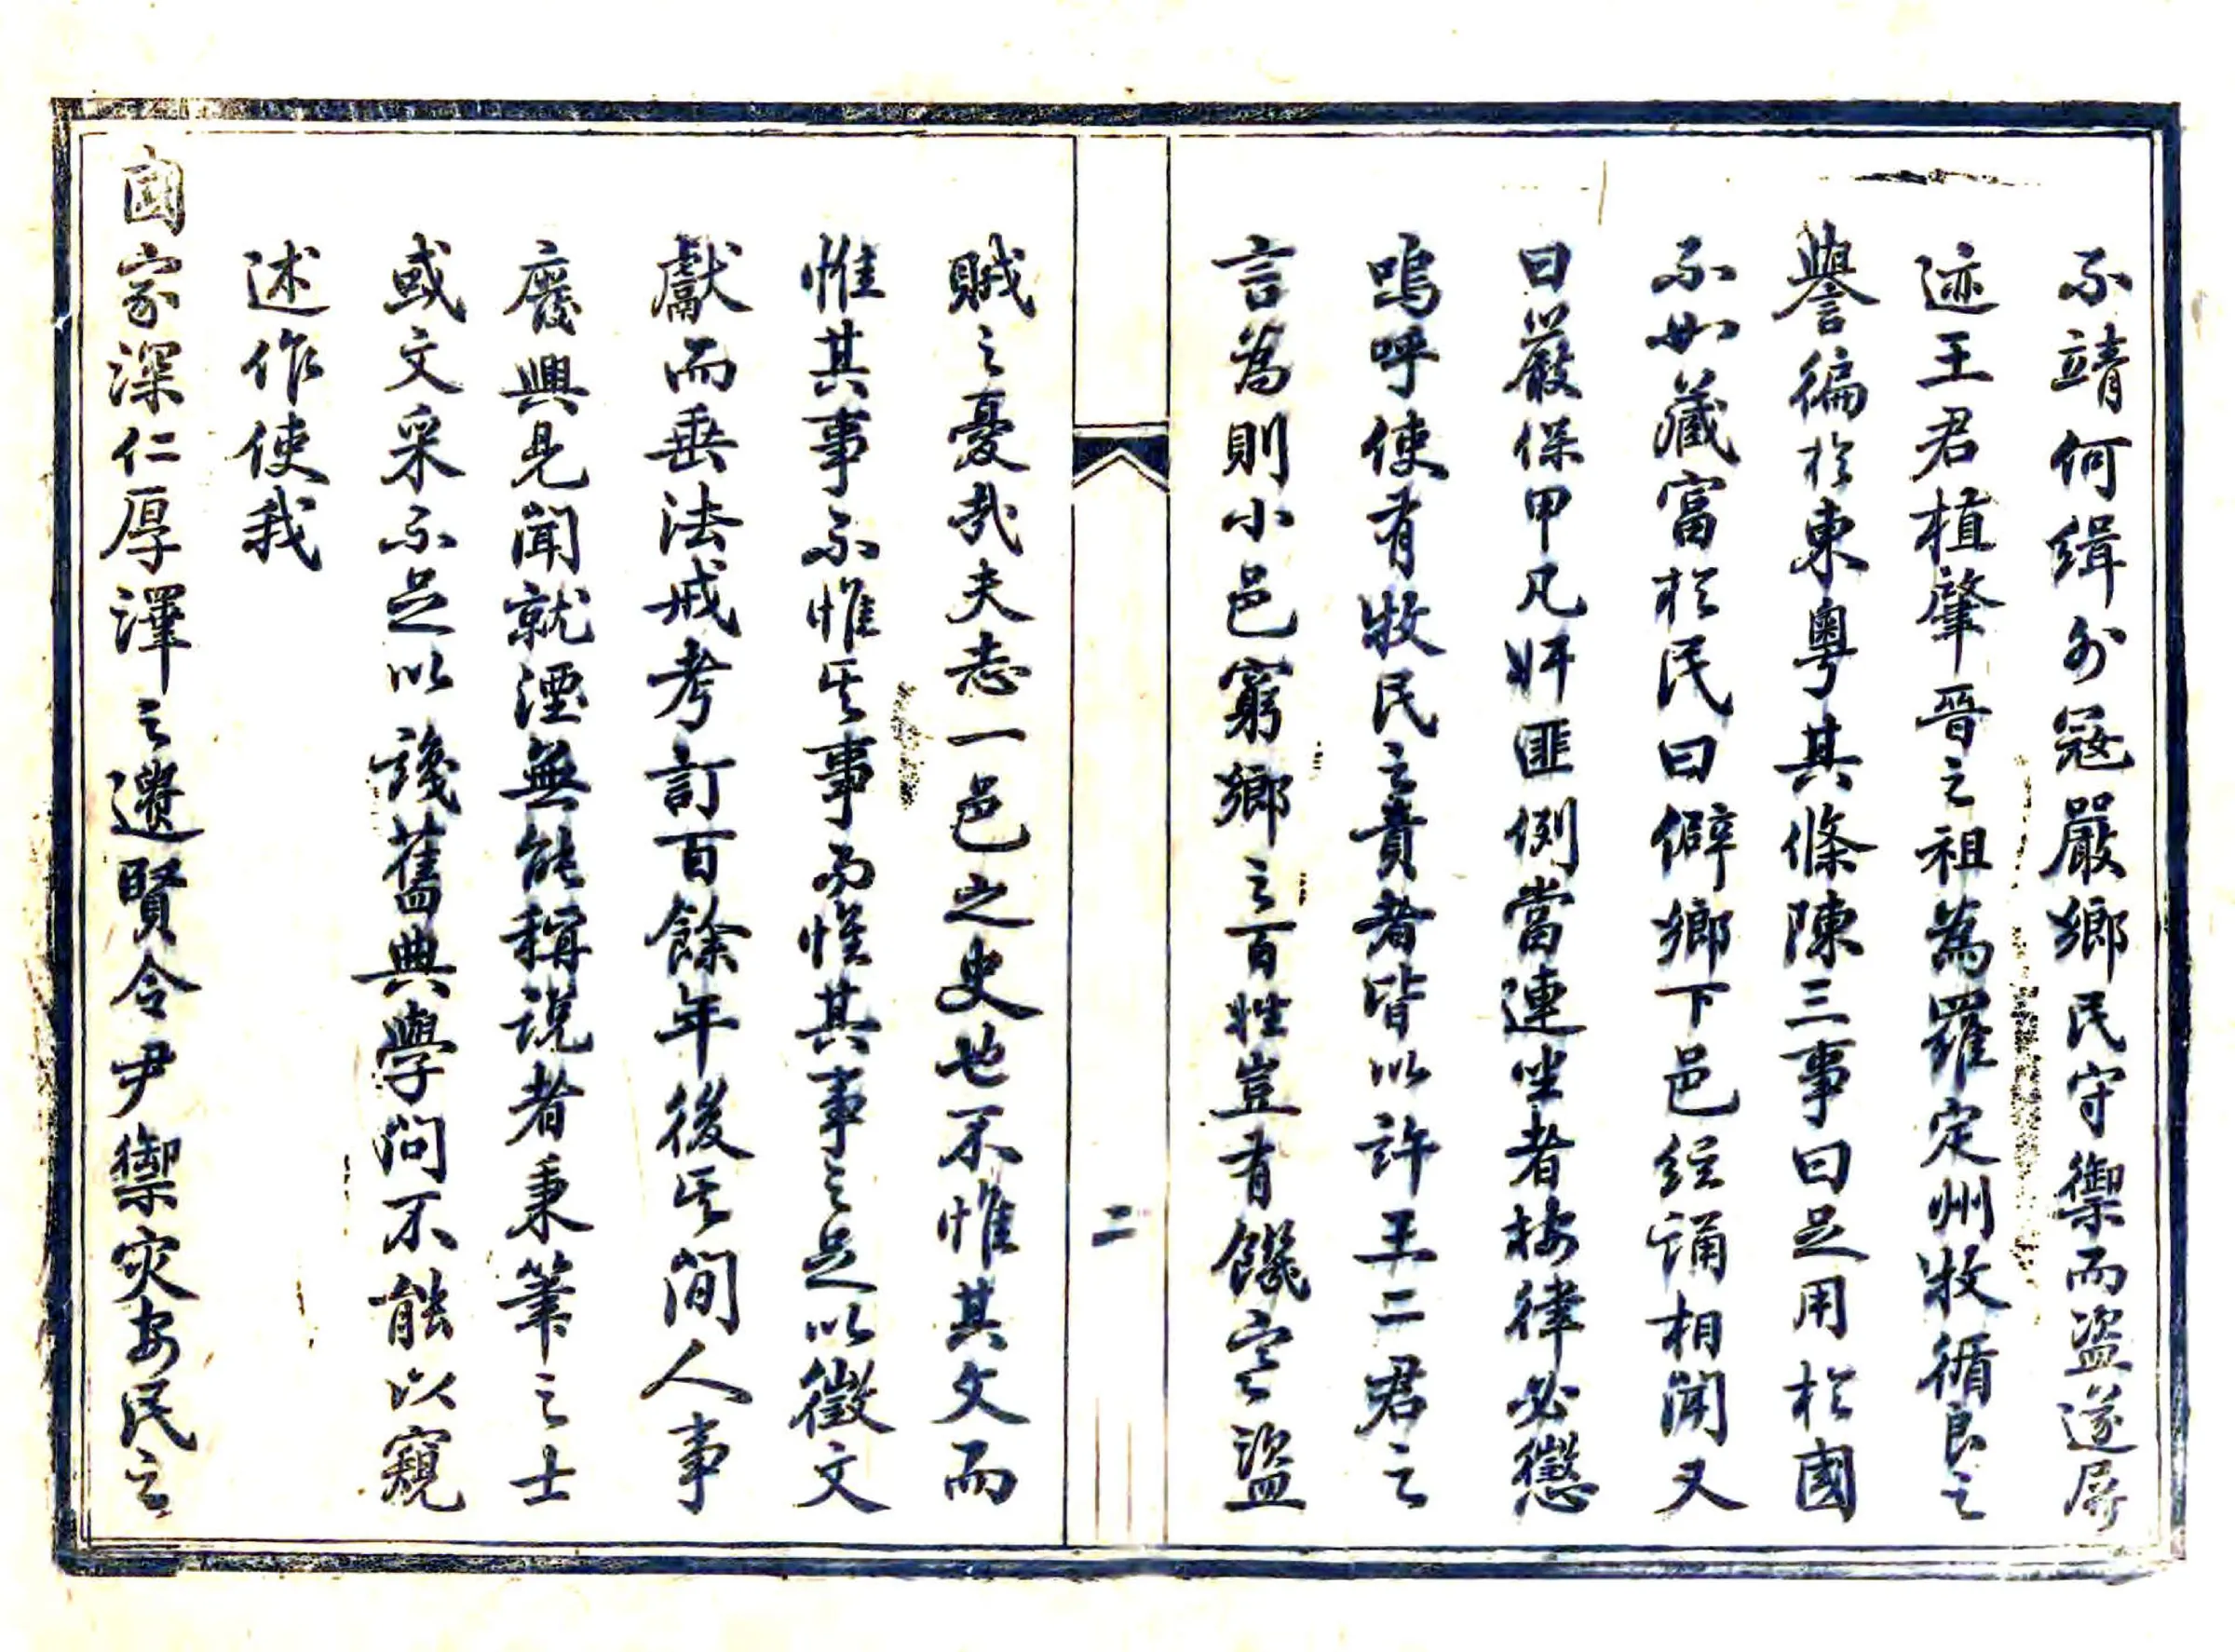 不靖何緝外寇嚴鄉民守禦而盜遂屏
迹王君植肇晉之祖為羅定州牧循良之
譽徧於東粵其條陳三事曰足用於國
不如藏富於民曰僻鄉下邑絃誦相聞又
曰嚴保甲凡奸匪例當連坐者按律必懲
嗚呼使有牧民之責者皆以許王二君之
言為則小邑窮鄉之百姓豈有饑寒盜
賊之憂哉夫志一邑之史也不惟其文而
惟其事不惟其事而惟其事之足以徵文
獻而垂法戒考訂百餘年後其間人事
廢興見聞就湮無能稱說者秉筆之士
或文采不足以識舊典學問不能以窺
述作使我
國家深仁厚澤之遺賢令尹禦灾安民之
二